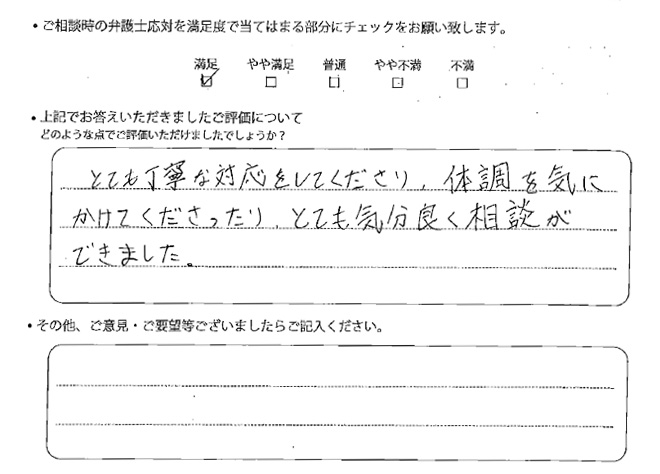 ・ご相談時の弁護士応対を満足度で当てはまる部分にチェックをお願い致します。
満足 やや満足 普通 やや不満 不満
☑ □ □ □ □
・上記でお答えいただきましたご評価について
どのような点でご評価いただけましたでしょうか？
とても丁寧な対応をしてくださり、体調を気に
かけてくださったり、とても気分良く相談が
できました。
・その他、ご意見・ご要望等ございましたらご記入ください。